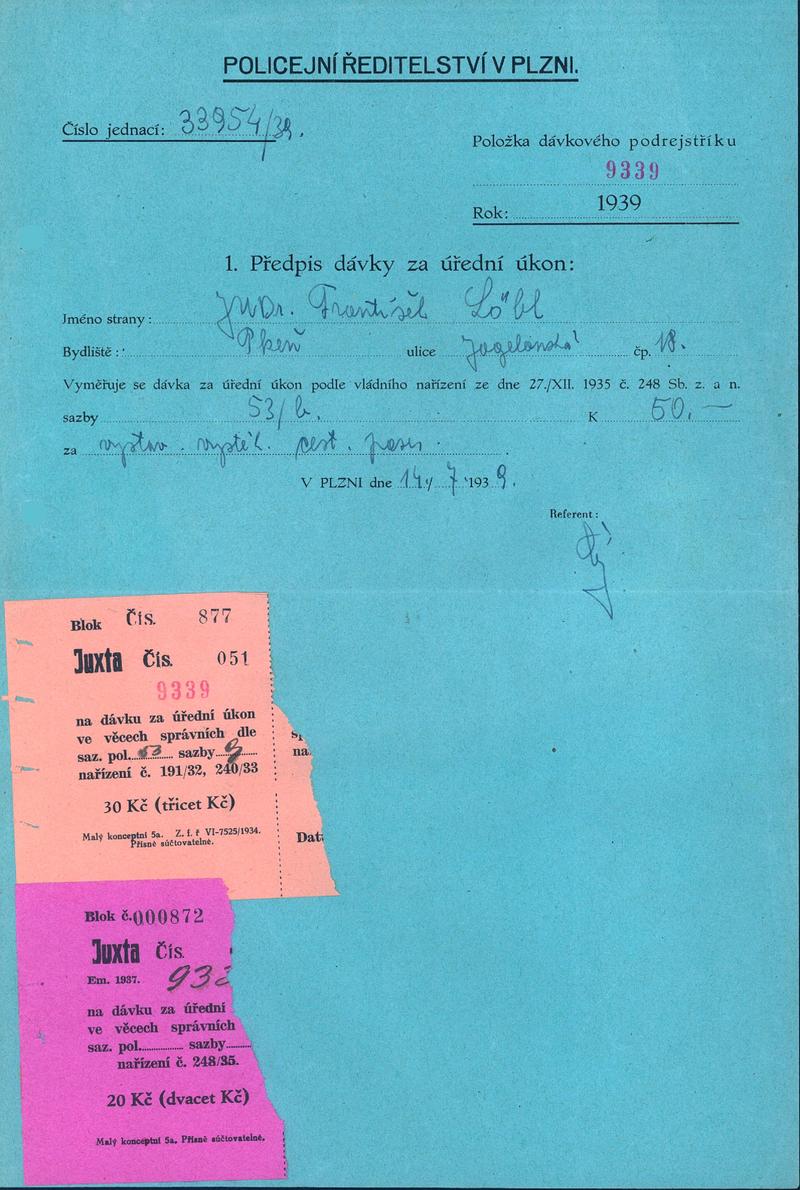 POLICEJNÍ ŘEDITELSTVÍ V PLZNI.
Číslo jednací: 33954/39.
Položka dávkového podrejstříku
9339
Rok: 1939
1. Předpis dávky za úřední úkon:
Jméno strany: JUDr. František Löbl
Bydliště: Plzeň ulice Jagelonská čp. 18.
Vyměřuje se dávka za úřední úkon podle vládního nařízení ze dne 27./XII. 1935 č. 248 Sb. z. a n.
sazby 53/b. K 50.—
za vystav. vystěh. cest. pasu.
V PLZNI dne 14./7. 1939.
Referent:
Blok Čís. 877
Juxta Čís. 051
9339
na dávku za úřední úkon
ve věcech správních dle
saz. pol. 53 sazby
nařízení č. 191/32, 240/33
30 Kč (třicet Kč)
Malý konceptní 5a. Z. f. ř VI-7525/1934.
Přísně súčtovatelné.
na
Dat
Blok č. 000872
Juxta Čís.
Em. 1937. 933
na dávku za úřední
ve věcech správních
saz. pol. sazby
nařízení č. 248/35.
20 Kč (dvacet Kč)
Malý konceptní 5a. Přísně súčtovatelné.